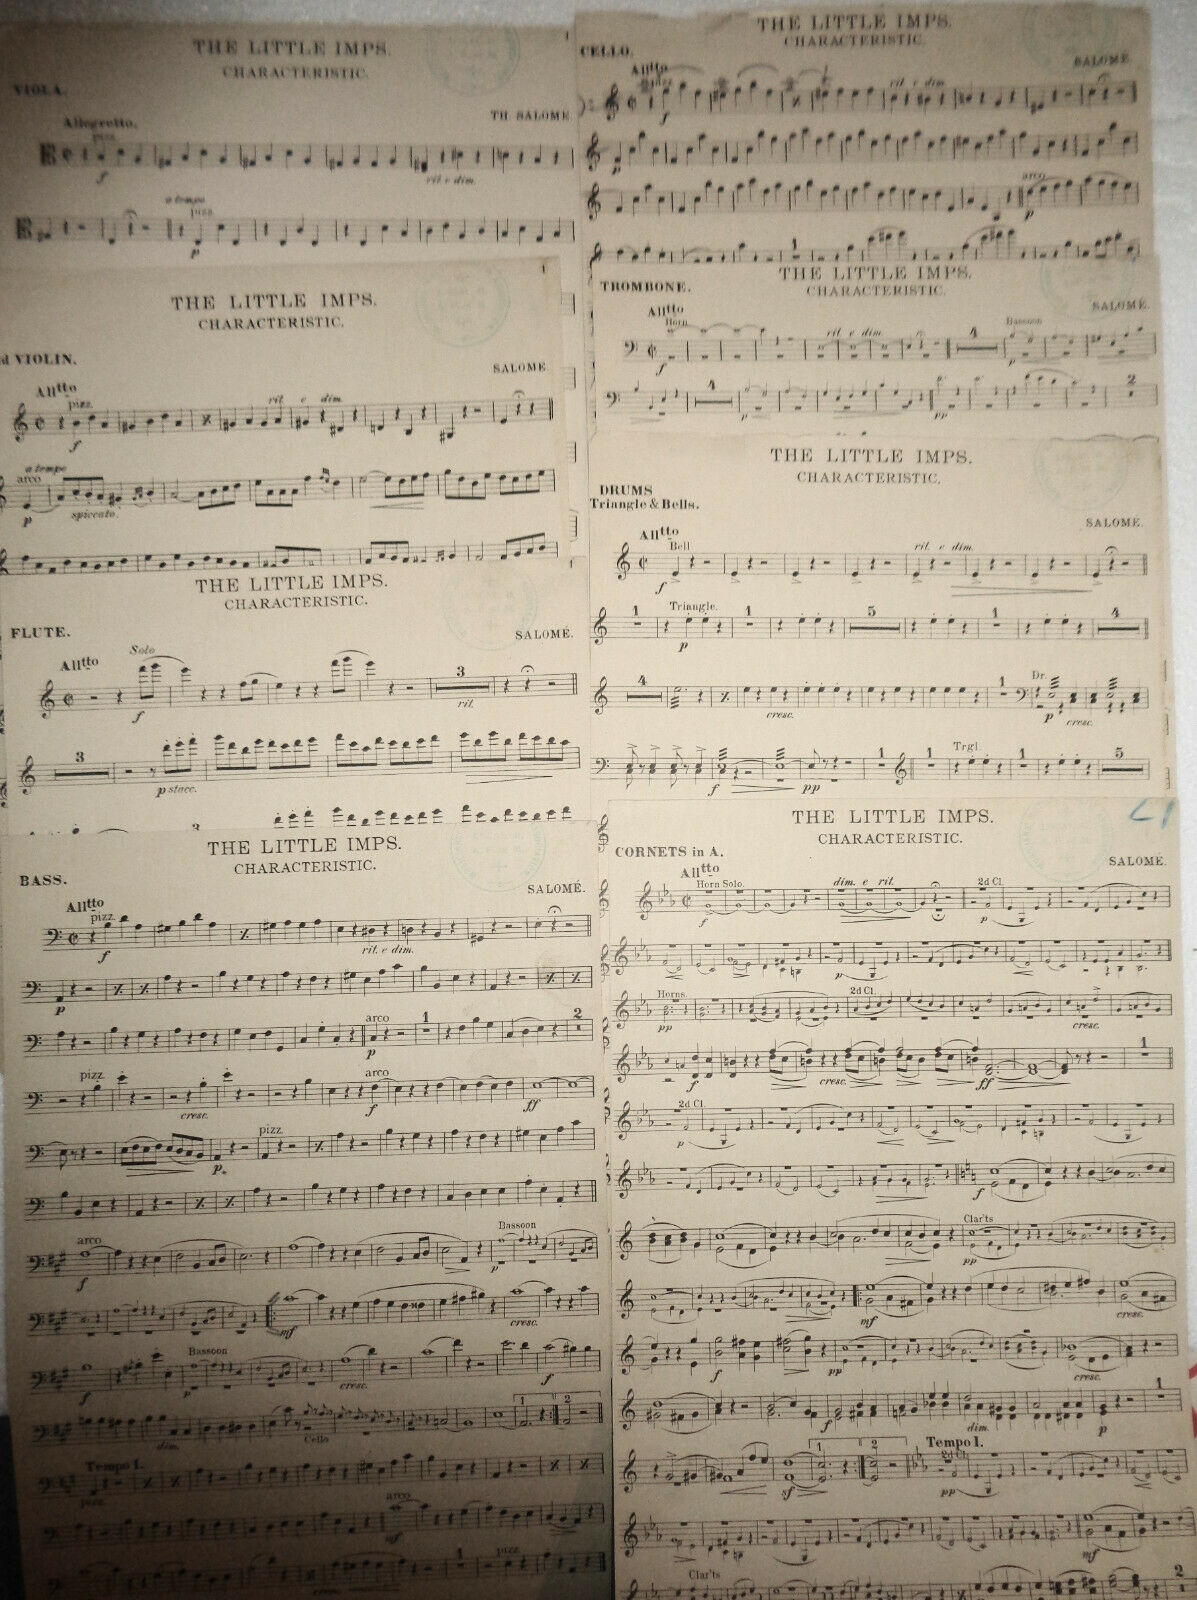 THE LITTLE IMPS.
CHARACTERISTIC.
VIOLA.
TH SALOMÉ.
Allegretto.
pizz.
f
rit e dim.
a tempo
pizz.
p
THE LITTLE IMPS.
CHARACTERISTIC.
CELLO.
SALOMÉ.
Allтto
f
rit e dim
p
arco
p
1
1
THE LITTLE IMPS.
CHARACTERISTIC.
d VIOLIN.
SALOMÉ
Alltto
pizz.
rit e dim.
f
a tempo
arco
p
spiccato.
THE LITTLE IMPS.
CHARACTERISTIC.
TROMBONE.
SALOMÉ.
Alltto
Horn
rit e dim.
4
Bassoon
f
p
4
2
p
pp
THE LITTLE IMPS.
CHARACTERISTIC.
DRUMS
Triangle & Bells.
SALOMÉ.
Alltto
Bell
rit. e dim.
f
1 Triangle. 1 5 1 4
p
4 1 Dr.
cresc.
p cresc.
1 1 Trgl. 1 5
f pp
THE LITTLE IMPS.
CHARACTERISTIC.
FLUTE.
SALOMÉ.
Alltto
Solo
3
f
rit.
3
p stacc.
3
THE LITTLE IMPS.
CHARACTERISTIC.
BASS.
SALOMÉ.
Alltto
pizz.
f
rit. e dim.
p
arco 1 2
p
pizz. arco
cresc. f ff
pizz.
p.
arco Bassoon
f p
mf cresc.
Bassoon
f p cresc. f
1 2
dim. Cello
Tempo I.
pizz.
arco
mf
1 pizz.
cresc.
THE LITTLE IMPS.
CHARACTERISTIC.
CORNETS in A.
SALOMÉ.
Alltto
Horn Solo.
dim. e rit.
2d Cl.
f p
p
Horns. 2d Cl.
pp cresc.
1
f cresc. ff
2d Cl.
p
f
Clar'ts
pp
mf cresc.
f pp cresc.
1
f dim. p
1 2 Tempo I.
2d Cl.
sf pp
mf
Clar'ts 2